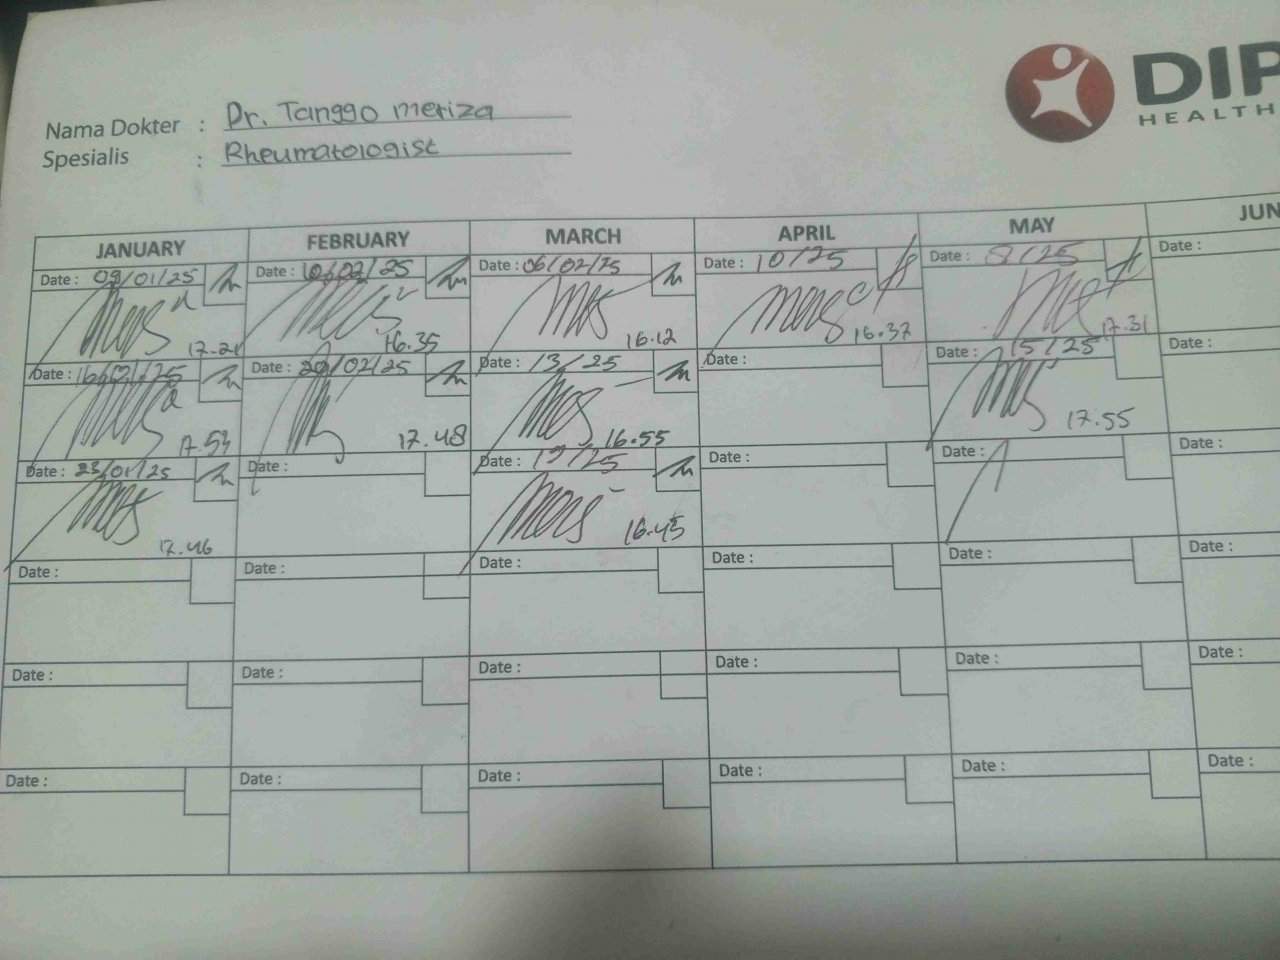 DIP
HEALTH
Nama Dokter : Dr. Tanggo Meriza
Spesialis : Rheumatologist
JANUARY FEBRUARY MARCH APRIL MAY JUN
Date : 09/01/25 Date : Date : 06/02/25 Date : 10/25 Date : 8/25 Date :
17.21 16.35 16.12 16.37 17.31
Date : Date : 20/02/25 Date : 13/25 Date : Date : 15/25 Date :
17.59 17.48 16.55 17.55
Date : 23/01/25 Date : Date : Date : Date : Date :
17.46 16.45
Date : Date : Date : Date : Date : Date :
Date : Date : Date : Date : Date : Date :
Date : Date : Date : Date : Date : Date :